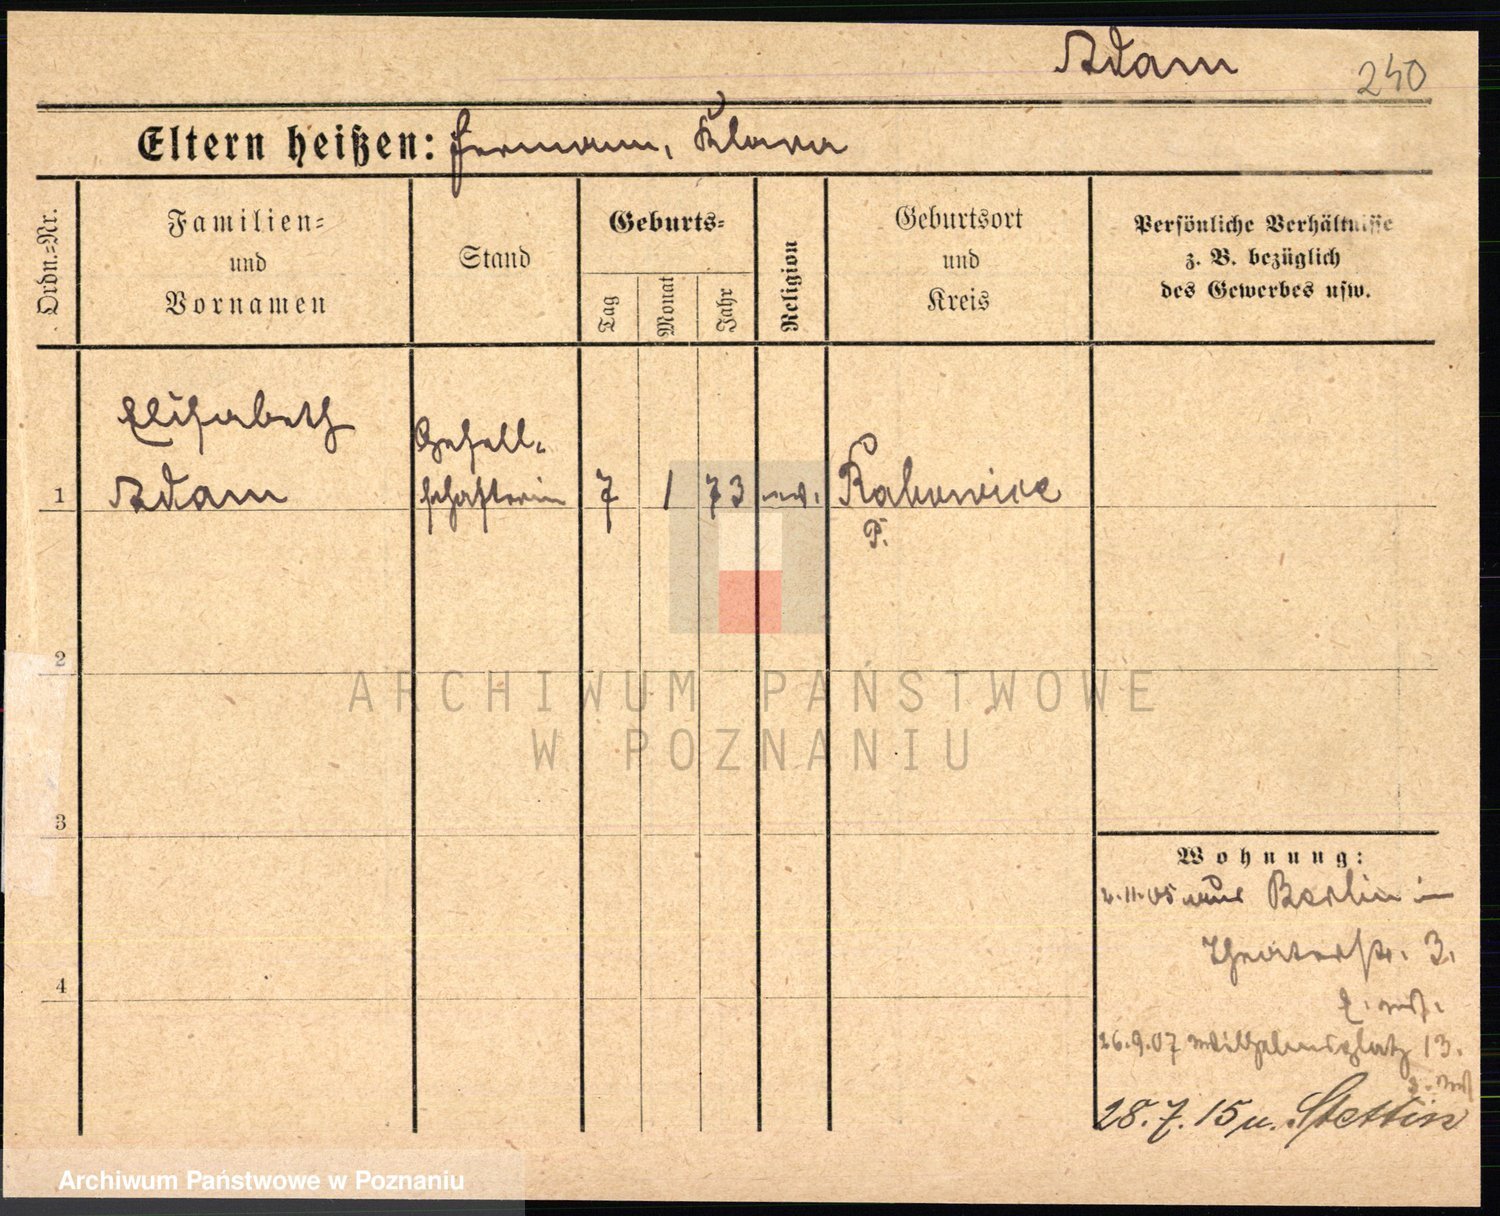 Adam
240
Eltern heißen: Hermann, Klara
Ordn.=Nr.
Familien=
und
Vornamen
Stand
Geburts=
Tag
Monat
Jahr
Religion
Geburtsort
und
Kreis
Persönliche Verhältnisse
z. B. bezüglich
des Gewerbes usw.
Elisabeth
Adam
Gesell=
schafterin
1
7
1
73
ev.
Rakowice
P.
2
3
4
Wohnung:
2.11.05 aus Berlin in
Theaterstr. 3.
26.9.07 Wilhelmsplatz 13.
28.7.15 n. Stettin
ARCHIWUM PAŃSTWOWE
W POZNANIU
Archiwum Państwowe w Poznaniu